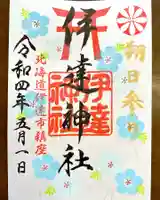 朔日参り
伊達神社
北海道伊達市鎮座
令和四年五月一日
伊達神社